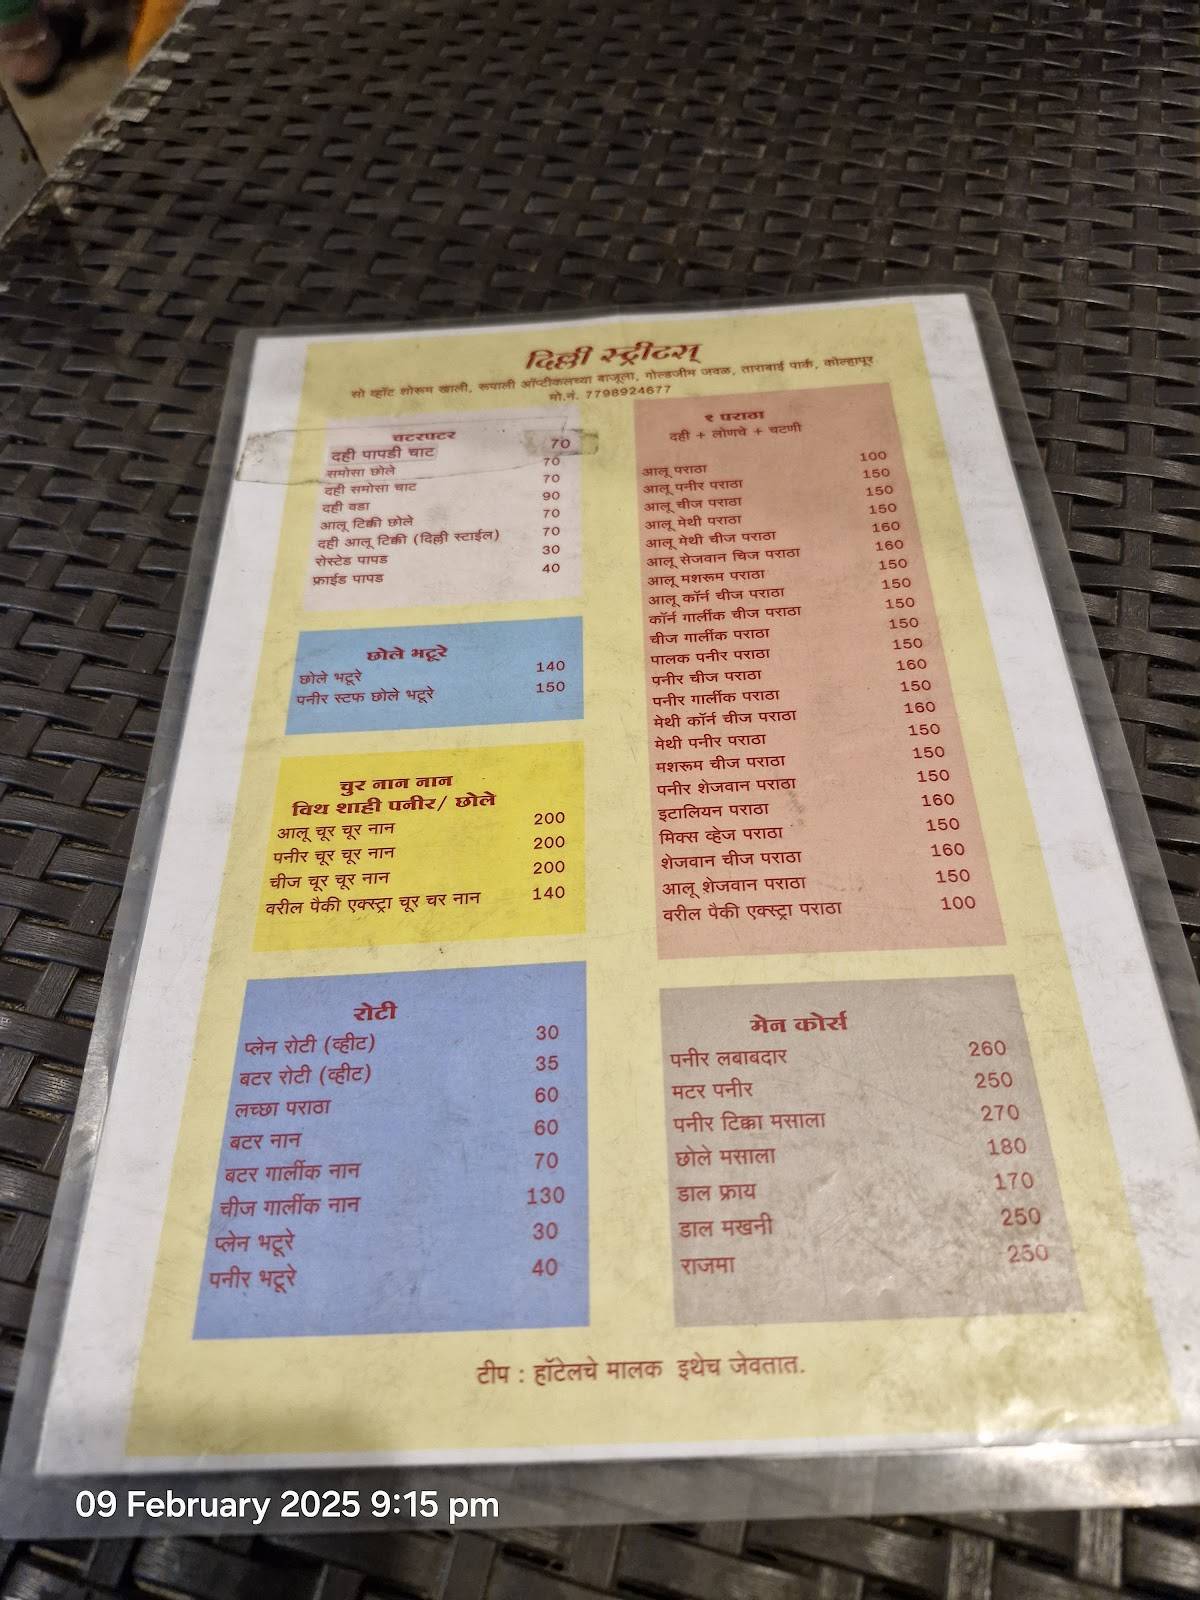 दिल्ली स्ट्रीटस्
सो व्हॉट शोरूम खाली, रूपाली ऑप्टीकलच्या बाजूला, गोल्डजीम जवळ, ताराबाई पार्क, कोल्हापूर
मो.नं. 7798924677
चटरपटर
दही पापडी चाट 70
समोसा छोले 70
दही समोसा चाट 70
दही वडा 90
आलू टिक्की छोले 70
दही आलू टिक्की (दिल्ली स्टाईल) 70
रोस्टेड पापड 30
फ्राईड पापड 40
छोले भटूरे
छोले भटूरे 140
पनीर स्टफ छोले भटूरे 150
चुर नान नान
विथ शाही पनीर/ छोले
आलू चूर चूर नान 200
पनीर चूर चूर नान 200
चीज चूर चूर नान 200
वरील पैकी एक्स्ट्रा चूर चर नान 140
रोटी
प्लेन रोटी (व्हीट) 30
बटर रोटी (व्हीट) 35
लच्छा पराठा 60
बटर नान 60
बटर गार्लीक नान 70
चीज गार्लीक नान 130
प्लेन भटूरे 30
पनीर भटूरे 40
१ पराठा
दही + लोणचे + चटणी
आलू पराठा 100
आलू पनीर पराठा 150
आलू चीज पराठा 150
आलू मेथी पराठा 150
आलू मेथी चीज पराठा 160
आलू सेजवान चिज पराठा 160
आलू मशरूम पराठा 150
आलू कॉर्न चीज पराठा 150
कॉर्न गार्लीक चीज पराठा 150
चीज गार्लीक पराठा 150
पालक पनीर पराठा 150
पनीर चीज पराठा 160
पनीर गार्लीक पराठा 150
मेथी कॉर्न चीज पराठा 160
मेथी पनीर पराठा 150
मशरूम चीज पराठा 150
पनीर शेजवान पराठा 150
इटालियन पराठा 160
मिक्स व्हेज पराठा 150
शेजवान चीज पराठा 160
आलू शेजवान पराठा 150
वरील पैकी एक्स्ट्रा पराठा 100
मेन कोर्स
पनीर लबाबदार 260
मटर पनीर 250
पनीर टिक्का मसाला 270
छोले मसाला 180
डाल फ्राय 170
डाल मखनी 250
राजमा 250
टीप : हॉटेलचे मालक इथेच जेवतात.
09 February 2025 9:15 pm